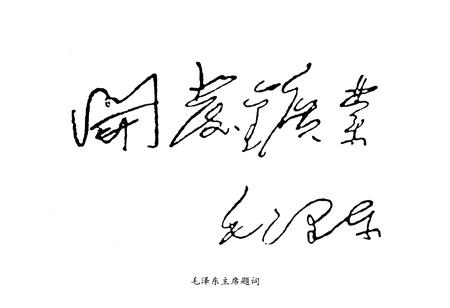 開發鑛業
毛泽东
毛泽东主席题词